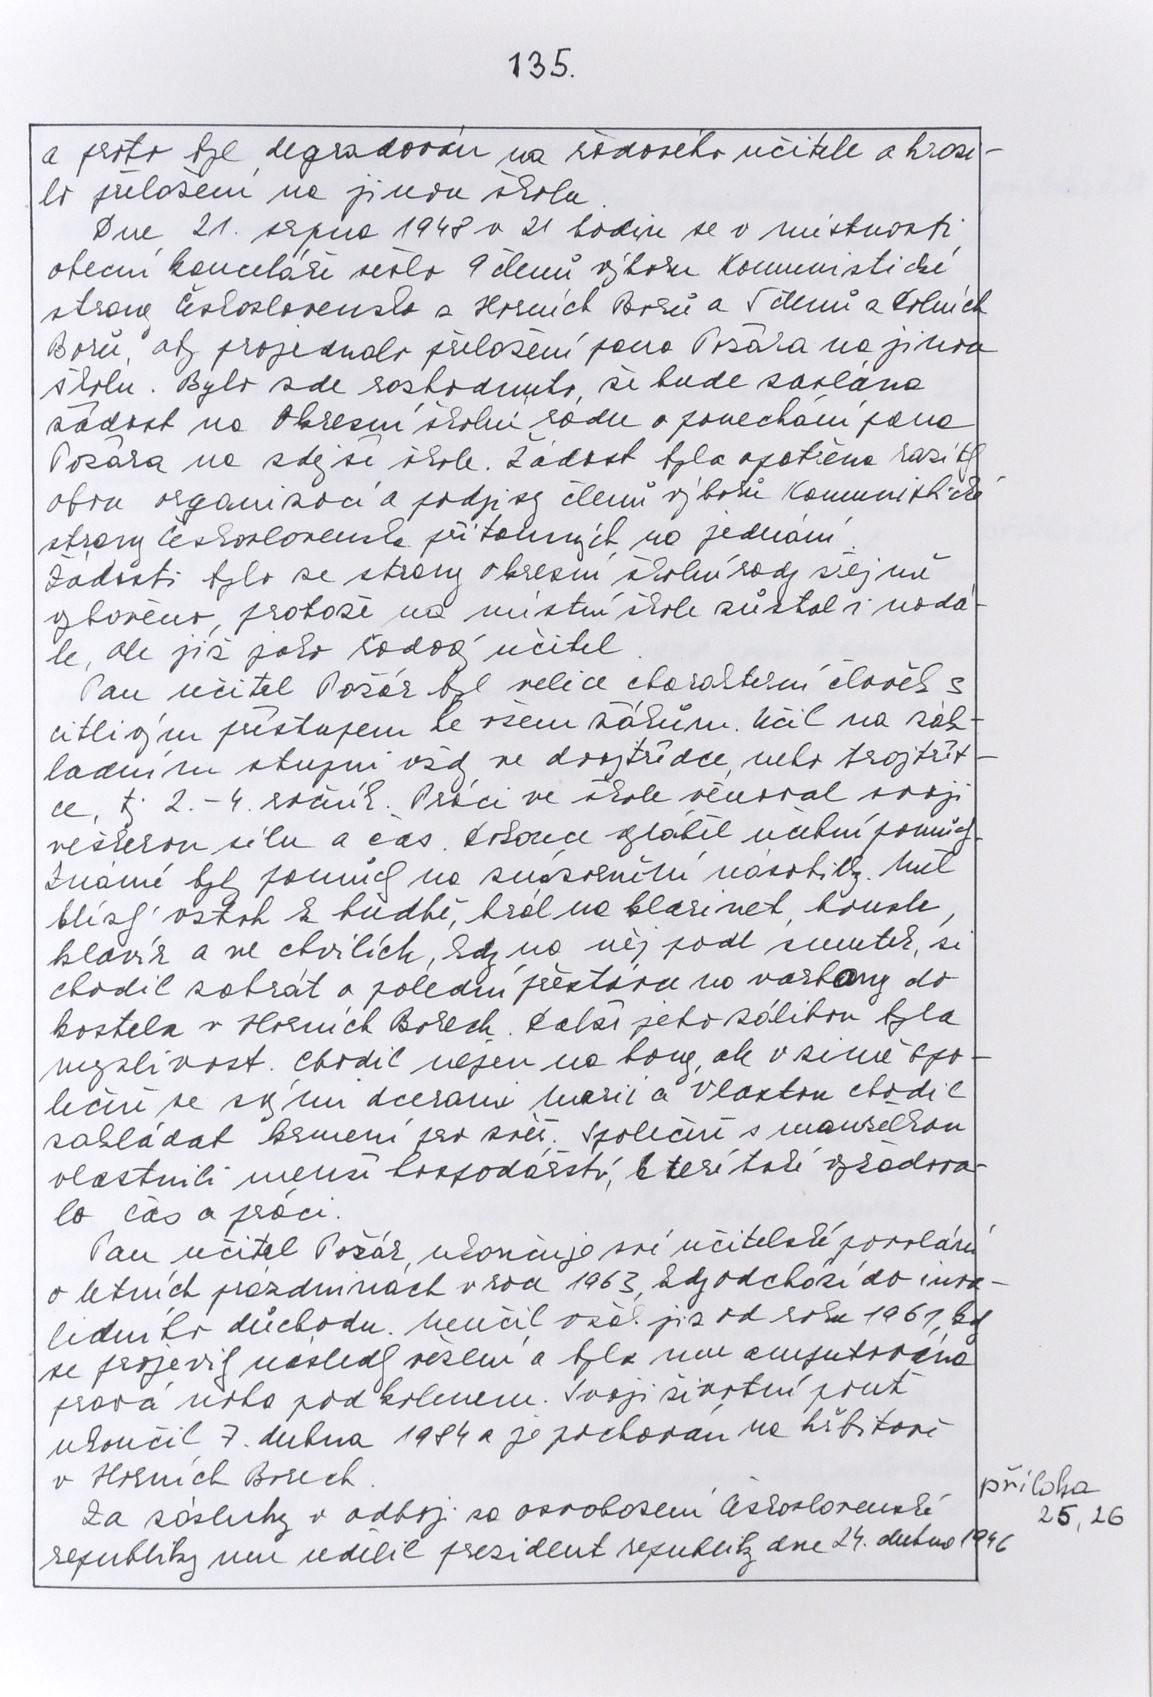 135.
a proto byl degradován na řadového učitele a hrozi-
lo přeložení na jinou školu.
Dne 21. srpna 1948 v 21 hodin se v místnosti
obecní kanceláře sešlo 9 členů výboru Komunistické
strany Československa z Horních Borů a 5 členů z Dolních
Borů, aby projednalo přeložení pana Požára na jinou
školu. Bylo zde rozhodnuto, že bude zaslána
žádost na Okresní školní radu o ponechání pana
Požára na zdejší škole. Žádost byla opatřena razítky
obou organizací a podpisy členů výborů Komunistické
strany Československa přítomných na jednání.
Žádosti bylo ze strany okresní školní rady zřejmě
vyhověno, protože na místní škole zůstal i nadá-
le, ale již jako řadový učitel.
Pan učitel Požár byl velice charakterní člověk s
citlivým přístupem ke všem žákům. Učil na zák-
ladním stupni vždy ve dvojtřídce, nebo trojtříd-
ce, tj. 2. - 4. ročník. Práci ve škole věnoval svoji
veškerou sílu a čas. Dokonce vyráběl učební pomůcky.
Známé byly pomůcky na znázornění násobilky. Měl
blízký vztah k hudbě, hrál na klarinet, housle,
klavír a ve chvílích, kdy na něj padl smutek, si
chodil zahrát o polední přestávce na varhany do
kostela v Horních Borech. Další jeho zálibou byla
myslivost. Chodil nejen na hony, ale v zimě spo-
lečně se svými dcerami Marií a Vlastou chodil
zakládat krmení pro zvěř. Společně s manželkou
vlastnili menší hospodářství, které také vyžadova-
lo čas a práci.
Pan učitel Požár, ukončuje své učitelské povolání
o letních prázdninách v roce 1963, kdy odchází do inva-
lidního důchodu. Neučil však již od roku 1961, kdy
se projevily následky věznění a byla mu amputována
pravá noha pod kolenem. Svoji životní pouť
ukončil 7. dubna 1984 a je pochován na hřbitově
v Horních Borech.
Za zásluhy v odboji za osvobození Československé
republiky mu udělil prezident republiky dne 24. dubna 1946
příloha
25, 26